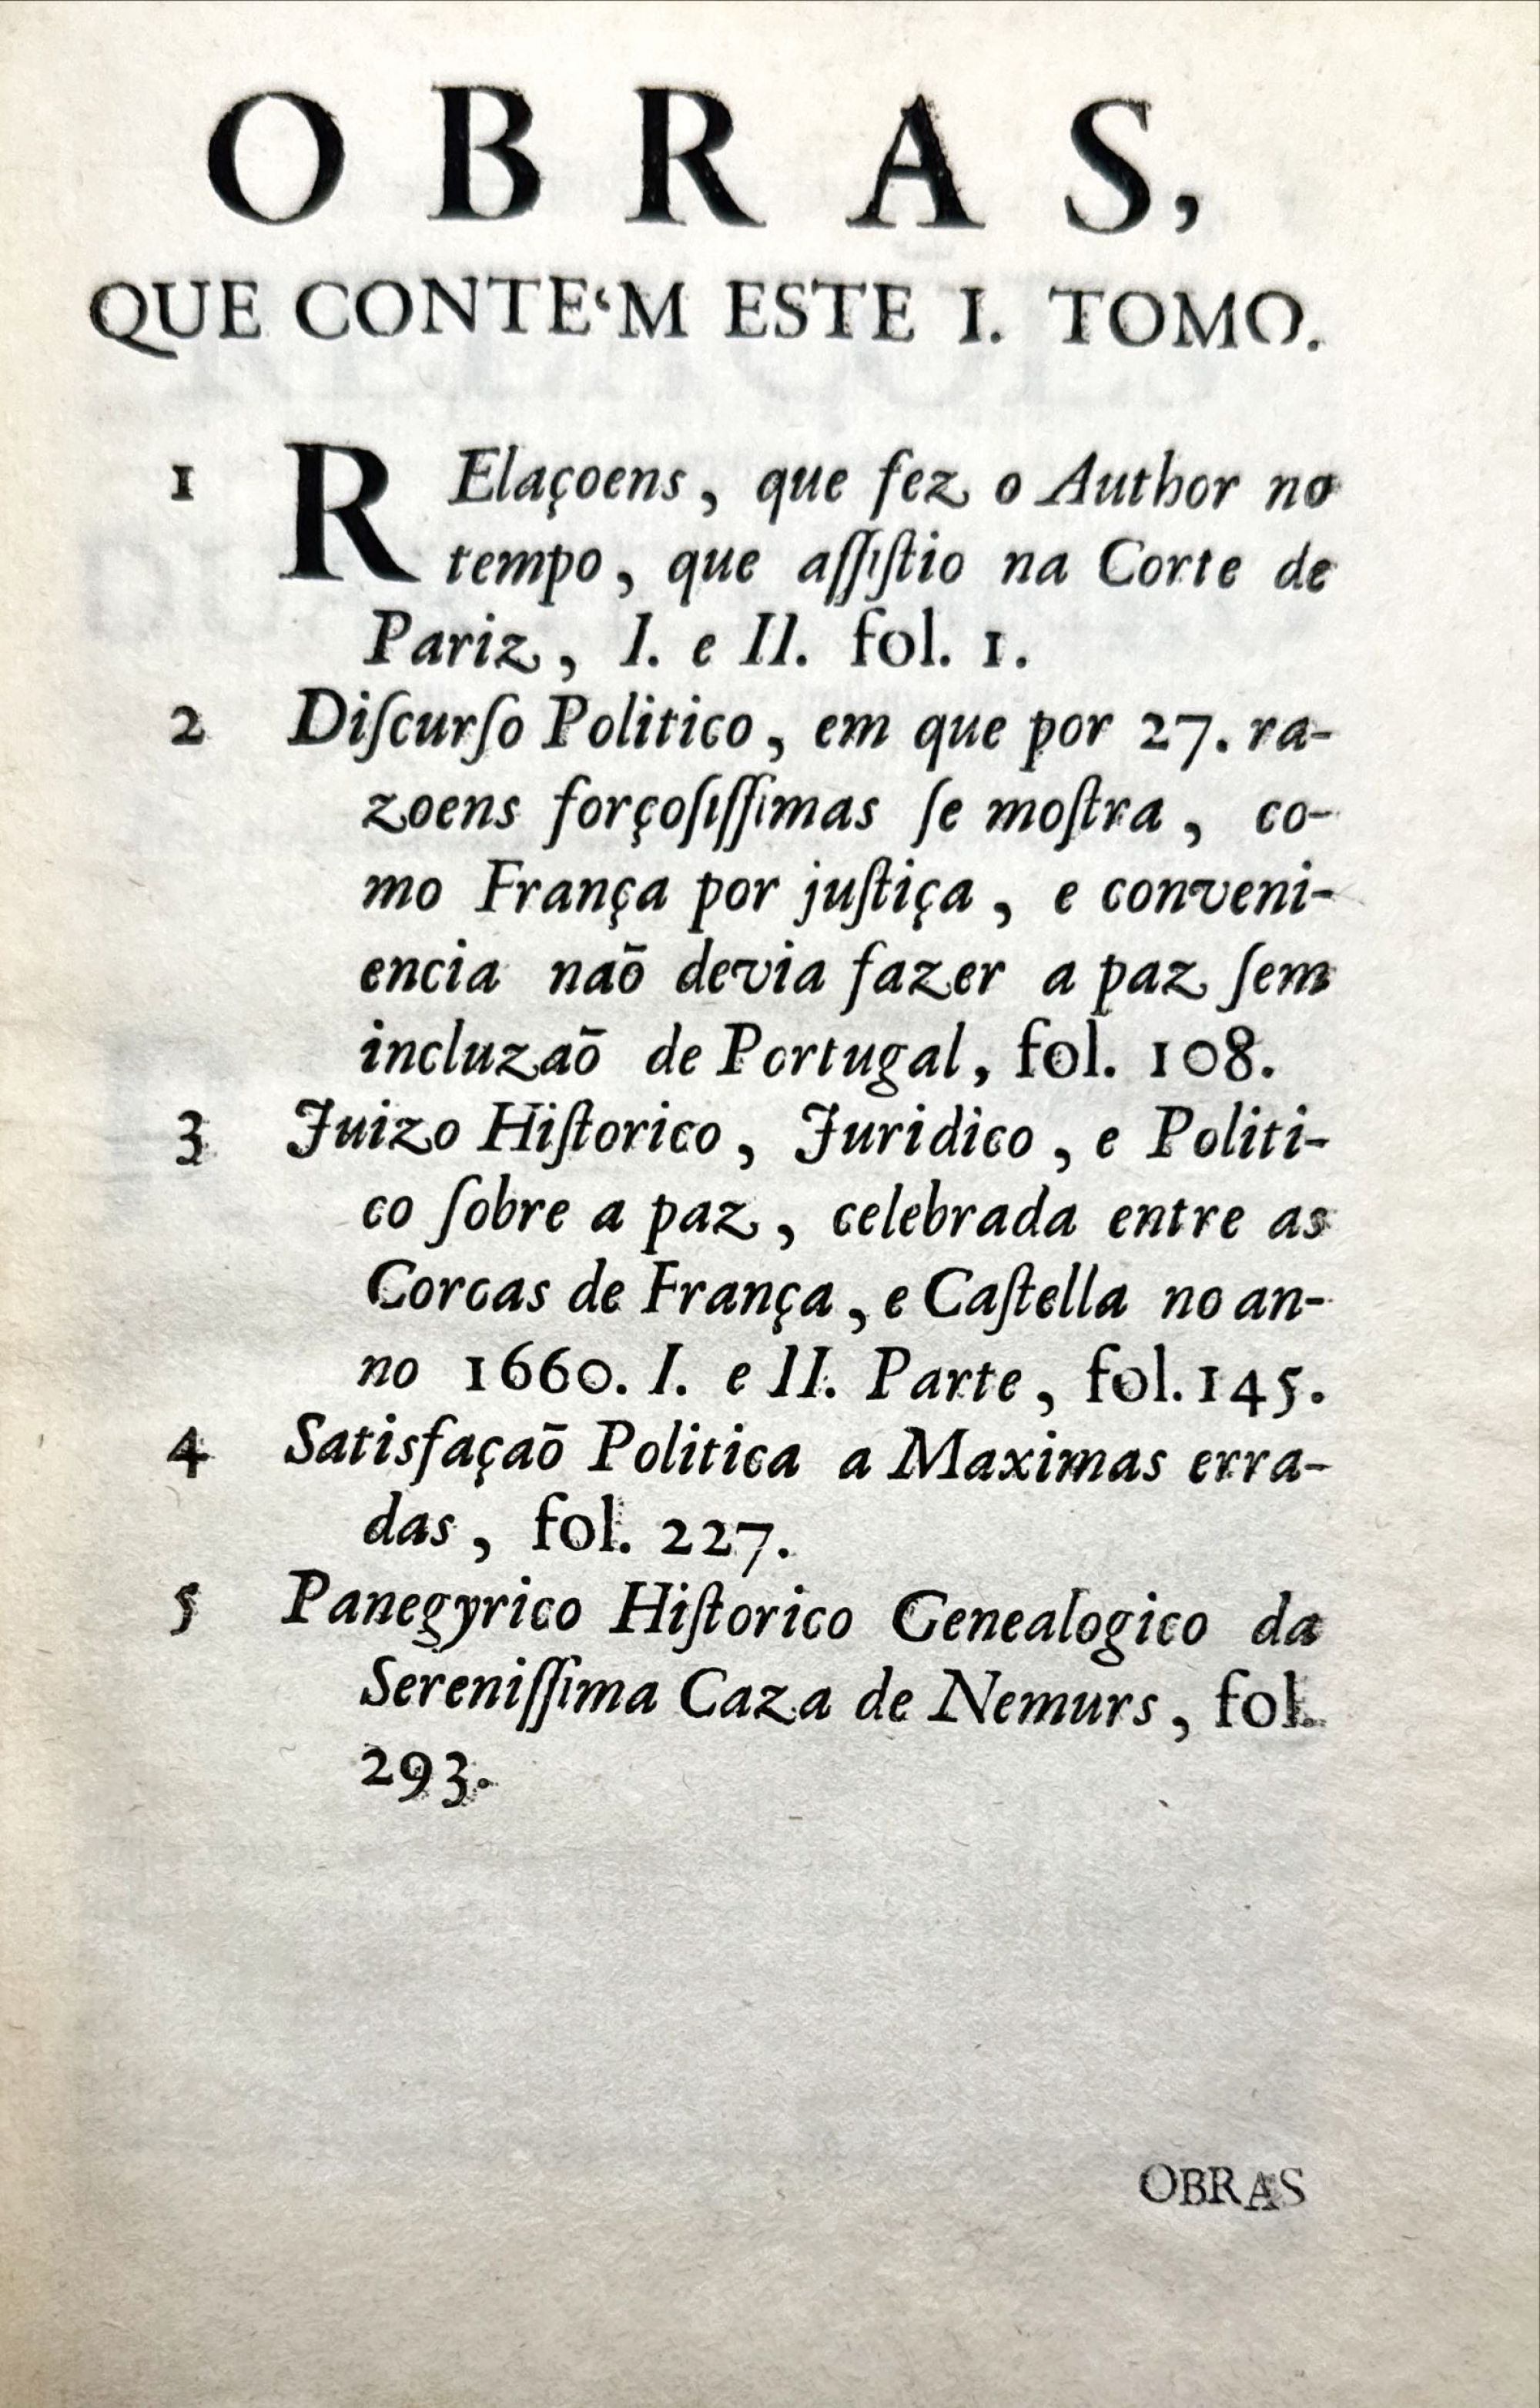 OBRAS,
QUE CONTE'M ESTE I. TOMO.
1 RElaçoens, que fez o Author no
tempo, que aſſiſtio na Corte de
Pariz, I. e II. fol. 1.
2 Diſcurſo Politico, em que por 27. ra-
zoens forçoſiſſimas ſe moſtra, co-
mo França por juſtiça, e conveni-
encia naõ devia fazer a paz ſem
incluzaõ de Portugal, fol. 108.
3 Juizo Hiſtorico, Juridico, e Politi-
co ſobre a paz, celebrada entre as
Coroas de França, e Caſtella no an-
no 1660. I. e II. Parte, fol. 145.
4 Satisfaçaõ Politica a Maximas erra-
das, fol. 227.
5 Panegyrico Hiſtorico Genealogico da
Sereniſſima Caza de Nemurs, fol.
293.
OBRAS